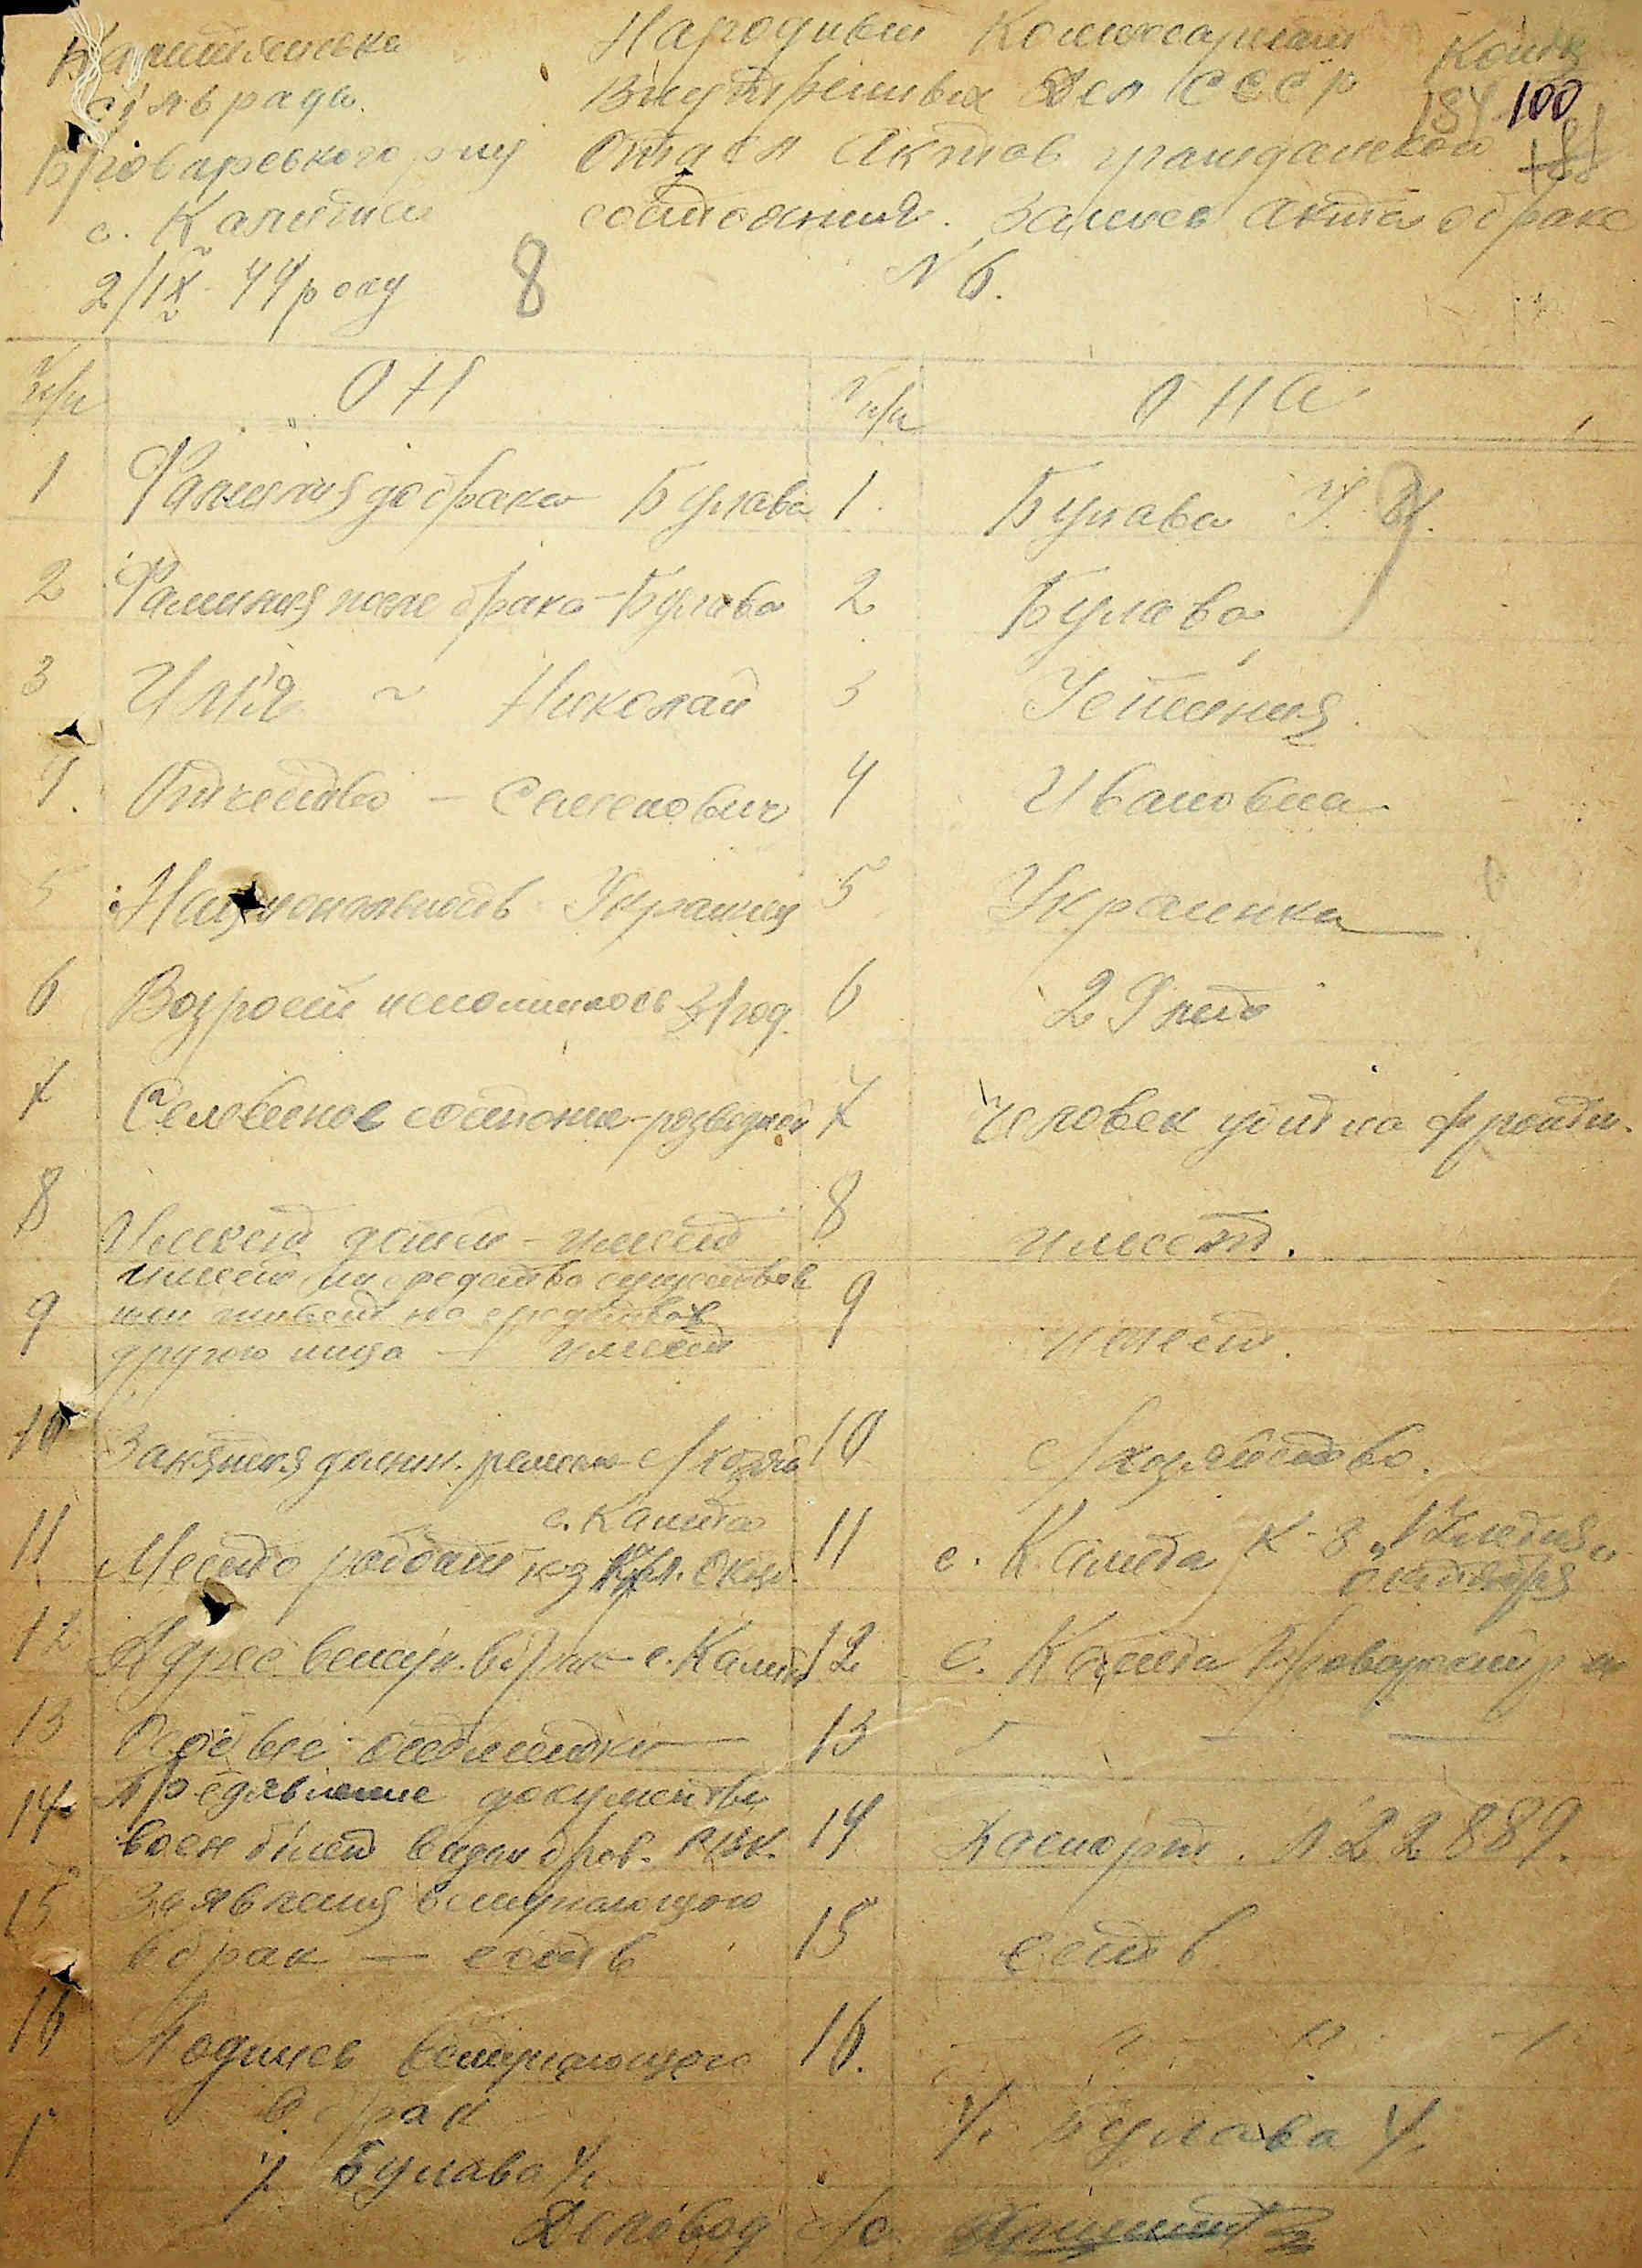 Калитянська
сільрада
Броварського р-ну
с. Калита
2/IX 44 року
Народный Комиссариат
Внутренних Дел СССР
Отдел Актов гражданского
состояния. Запись акта о браке
N 6.
184 100
8
N п/п ОН
N п/п ОНА
1 Фамилия до брака Булава
1 Булава У. И.
2 Фамилия после брака - Булава
2 Булава
3 Имя ~ Николай
3 Устиния
4. Отчество - Семенович
4 Ивановна
5 Национальность Украинец
5 Украинка
6 Возраст исполнилось 31 год.
6 29 лет
7 Семейное состояние - разведеный
7 Человек убит на фронти.
8 Имеет детей - имеет
8 имеет.
9 имеет ли средства существов
или живет на средства
другого лица - имеет
9 имеет.
10 Занятия ремесло с/хозяй
10 с/хозяйство.
11 с. Калита
Место работы к-з Окт.
11 с. Калита к-з "
октября
12 Адрес вступ. в брак с. Калита
12 с. Калита Броварский р-н
13 Особые отметки —
13 — — —
14 Предявление документы
воен билет видан бров. РВК.
14 Паспорт. N 22889.
15 Заявления вступающого
в брак — есть
15 есть
16 Подпись вступающего
в брак
/ Булава /
16. — " — " —
/ Булава /
Деловод с/с